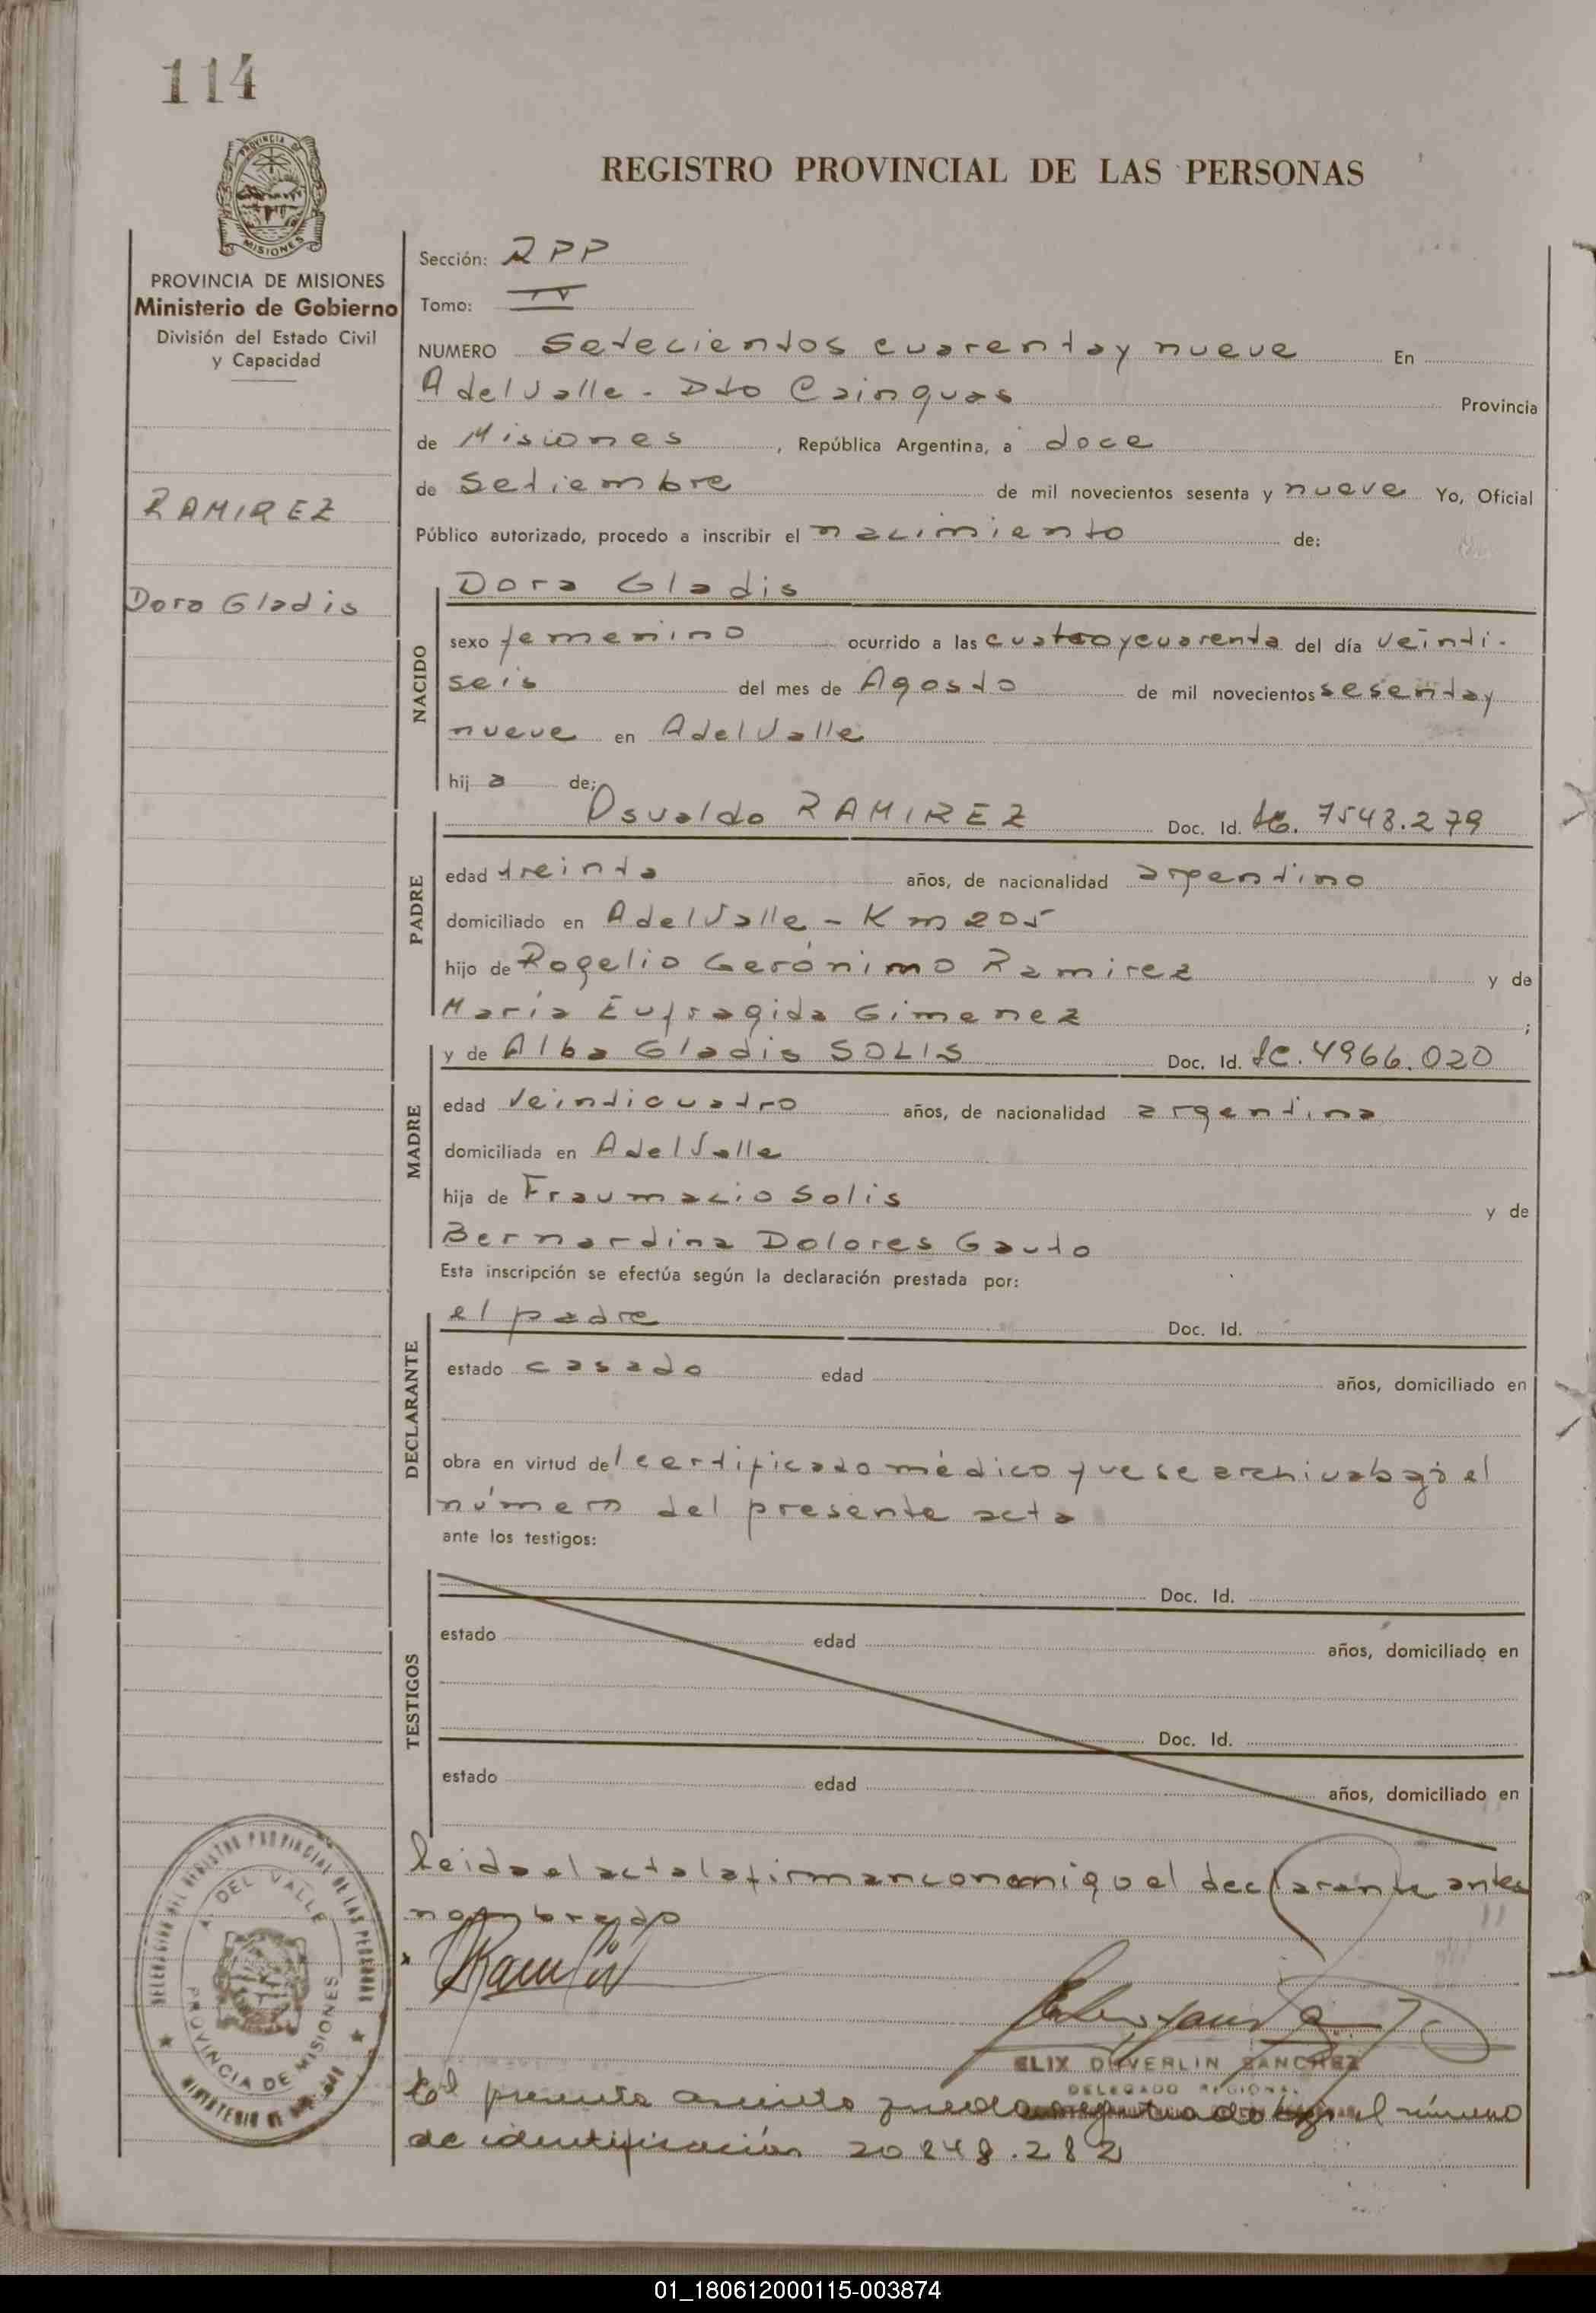 114
PROVINCIA DE
MISIONES
REGISTRO PROVINCIAL DE LAS PERSONAS
PROVINCIA DE MISIONES
Ministerio de Gobierno
División del Estado Civil
y Capacidad
RAMIREZ
Dora Gladis
Sección: RPP
Tomo: IV
NUMERO Setecientos cuarenta y nueve En
A del Valle - Dto Cainguas Provincia
de Misiones, República Argentina, a doce
de Setiembre de mil novecientos sesenta y nueve Yo, Oficial
Público autorizado, procedo a inscribir el nacimiento de:
NACIDO
Dora Gladis
sexo femenino ocurrido a las cuatro y cuarenta del día veinti-
seis del mes de Agosto de mil novecientos sesenta y
nueve en A del Valle
hij a de:
PADRE
Osvaldo RAMIREZ Doc. Id. 7548.279
edad treinta años, de nacionalidad argentino
domiciliado en A del Valle - Km 205
hijo de Rogelio Gerónimo Ramirez y de
María Eufragida Gimenez ;
MADRE
y de Alba Gladis SOLIS Doc. Id. LC. 4966.020
edad veinticuatro años, de nacionalidad argentina
domiciliada en A del Valle
hija de Fraumacio Solis y de
Bernardina Dolores Gauto
Esta inscripción se efectúa según la declaración prestada por:
DECLARANTE
el padre Doc. Id.
estado casado edad años, domiciliado en
obra en virtud del certificado médico que se archiva bajo el
número del presente acta
ante los testigos:
TESTIGOS
Doc. Id.
estado edad años, domiciliado en
Doc. Id.
estado edad años, domiciliado en
Leida el acta la firman conmigo el declarante antes
nombrado
ELIX DUVERLIN SANCHEZ
DELEGADO REGIONAL
El presente asiento queda registrado bajo el número
de identificación 20.848.282
DELEGACION DEL REGISTRO PROVINCIAL DE LAS PERSONAS
A. DEL VALLE
PROVINCIA DE MISIONES
MINISTERIO DE
01_180612000115-003874